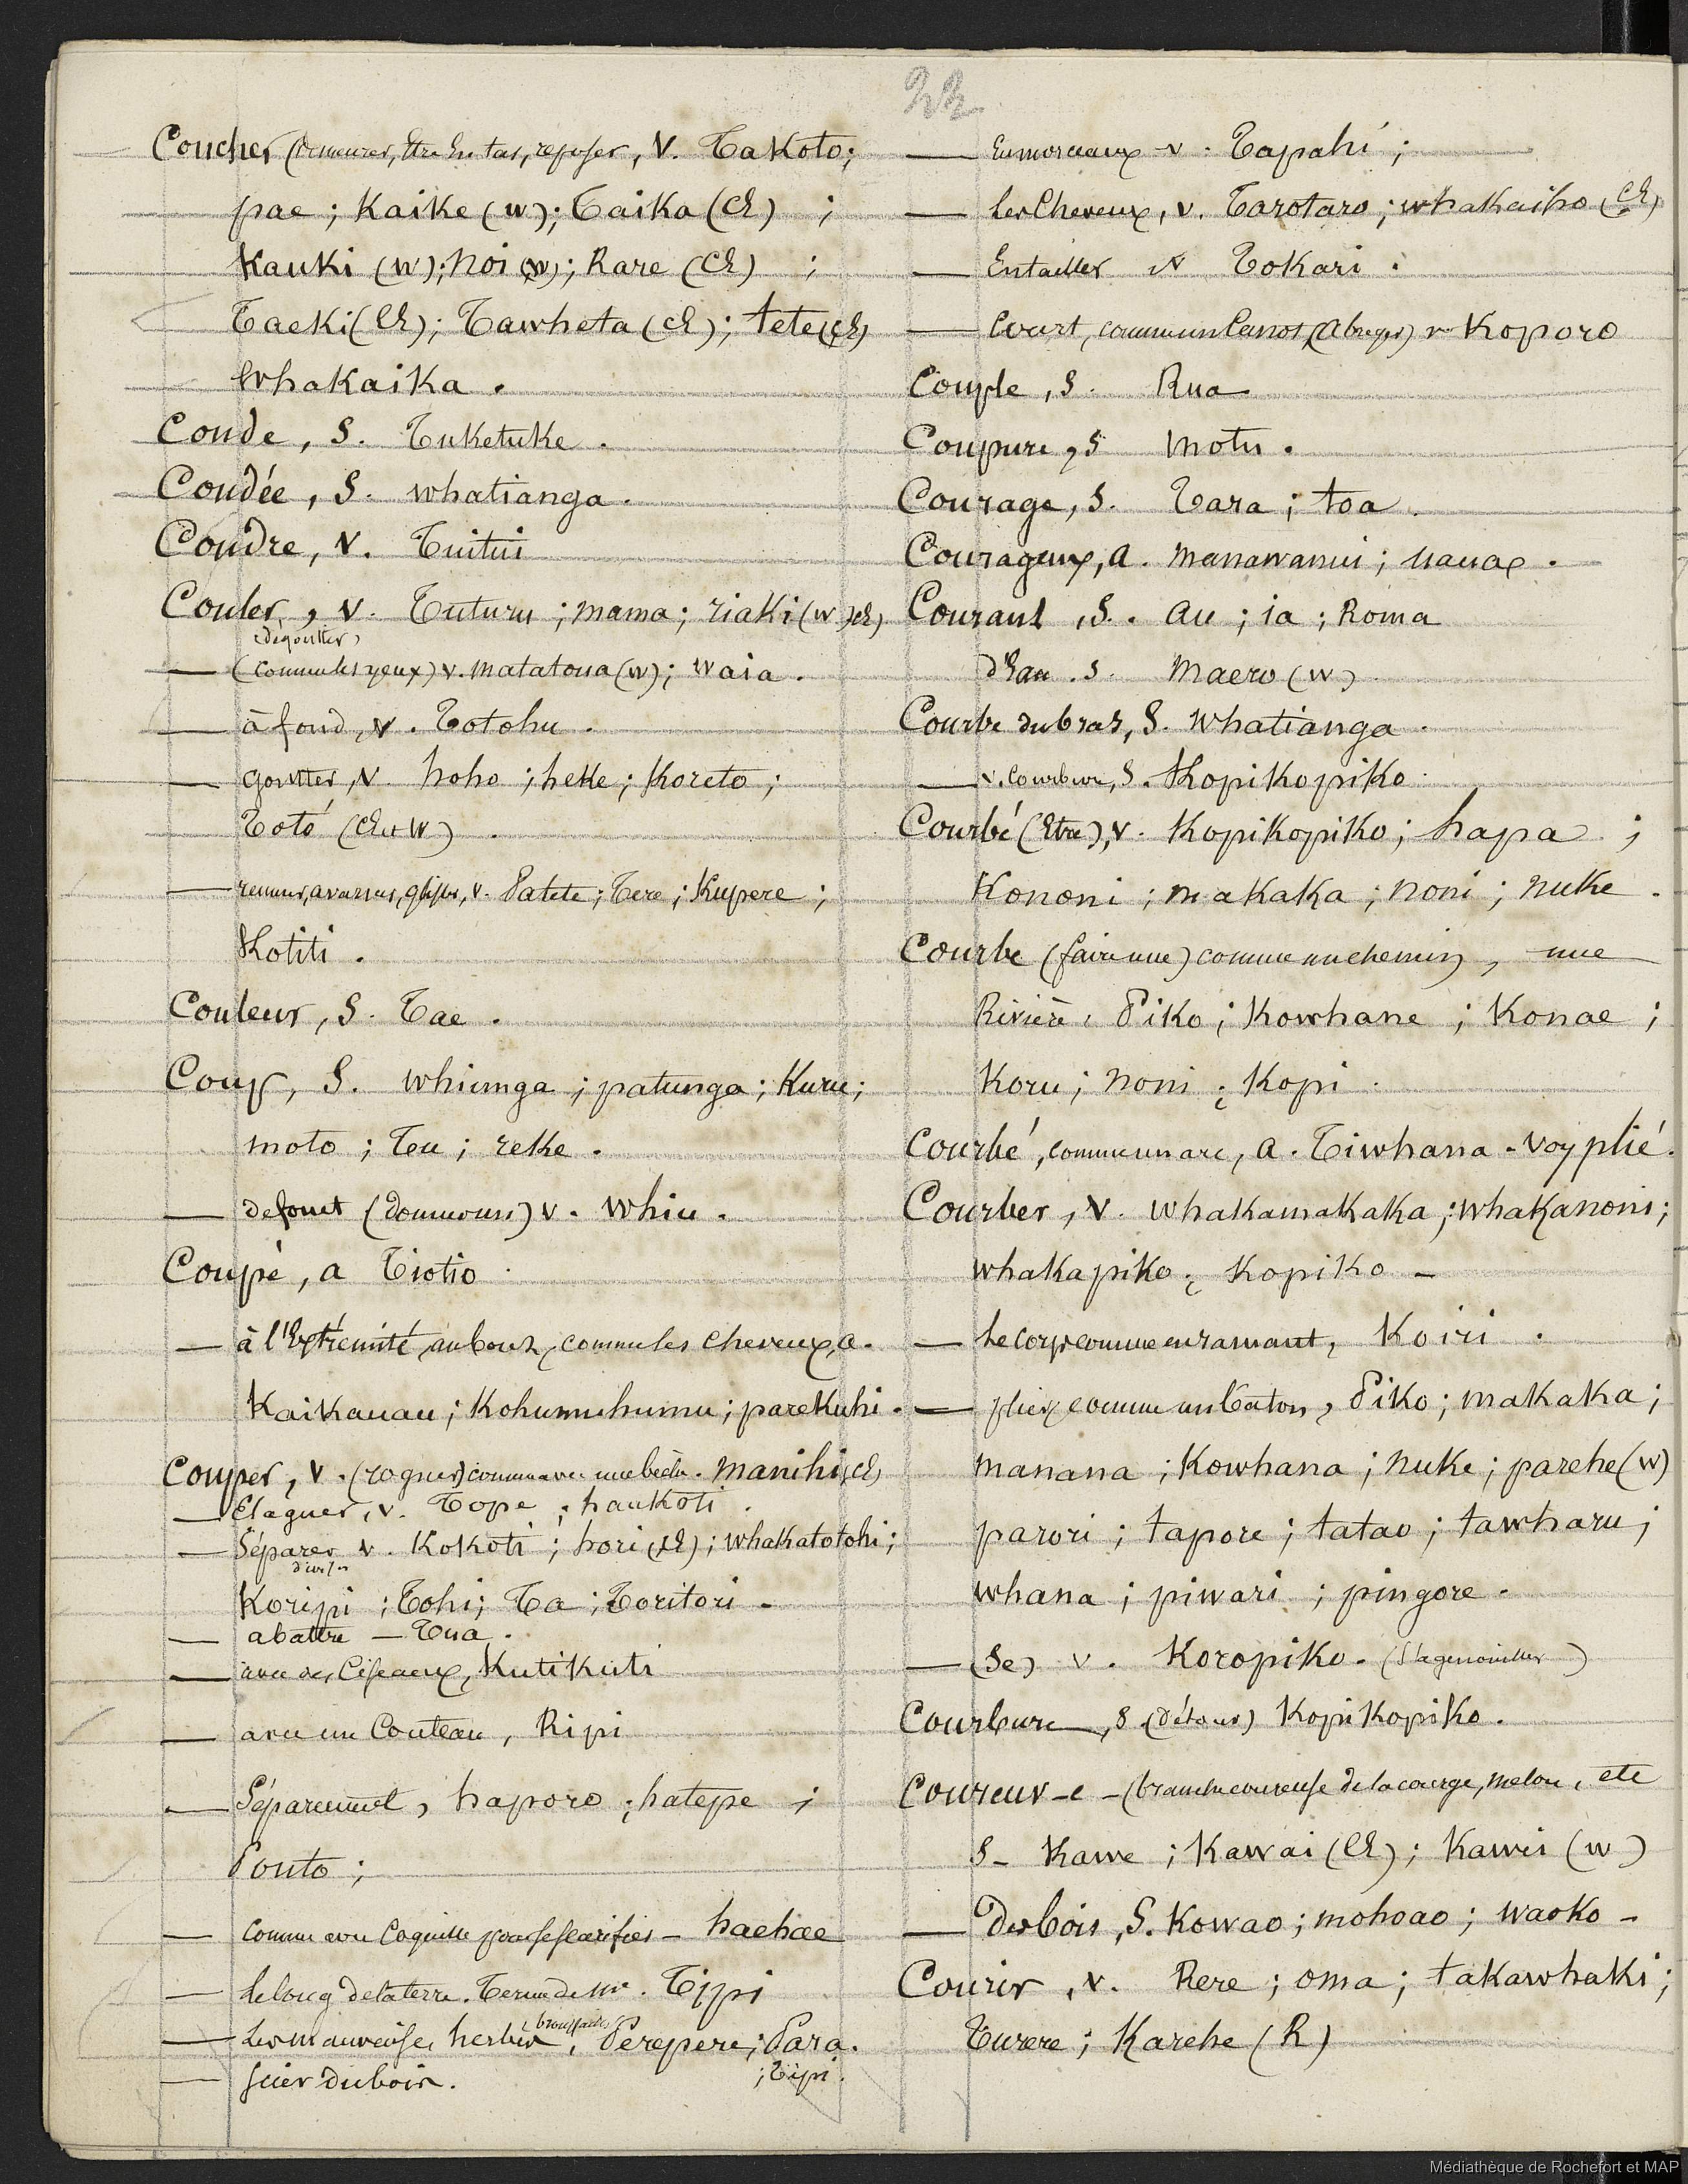 22
Coucher (Demeurer, Etre En tas, reposer, v. Takoto;
pae; Kaike (w); Taika (Ch) ;
Kauki (w); noi (w); Rare (Ch) ;
Taeki (Ch); Tawheta (Ch); tete (Ch)
Whakaika.
Coude, S. Tuketuke.
Coudée, S. whatianga.
Coudre, v. Tuitui
Couler, v. Tuturu; mama; riaki (w) Ch)
(dégoutter)
— (comme les yeux) v. matatoua (w); waia.
— à fond, v. Totohu.
— goutter, v. hoho; heke; Koreto;
Toto (Ch et W).
— remuer, avancer, glisser, v. Patete; Tere; Kupere;
Kotiti.
Couleur, S. Tae.
Coup, S. whiunga; patunga; Kuru;
moto; Teu; reke.
— de fouet (donner un) v. whiu.
Coupé, a Tiotio.
— à l'Extrémité, au bout, comme les cheveux, a.
Kaikauau; Kohumuhumu; parekuhi.
Couper, v. (rogner) comme avec une bèche. Manihi (Ch)
— Elaguer, v. Tope; haukoti.
— Séparer v. Kokoti; hori (Ch); whakatotohi;
diviser
Koripi; Tohi; Ta; Toritori.
— abattre — Tua.
— avec des Ciseaux, Kutikuti
— avec un Couteau, Ripi
— Séparément, haporo; hatepe;
Pouto;
— comme avec Coquille pour se scarifier — haehae
— le long de la terre. Terme de mr. Tipi
— les mauvaises herbes, Perepere; Para.
broussailles
— scier du bois. ; Tipi.
— En morceaux v. Tapahi;
— Les Cheveux, v. Tarotaro; whakaiho (Ch)
— Entailler v Tokari.
— Court, comme un Canot, (Abréger) v. Koporo
Couple, S. Rua
Coupure, S motu.
Courage, S. Tara; toa.
Courageux, a. manawanui; uaua.
Courant, S. au; ia; Roma
d'Eau. S. Maero (w)
Courbe du bras, S. whatianga.
— v. Courbure, S. Kopikopiko.
Courbé (Etre), v. Kopikopiko; hapa;
Kononi; makaka; noni; nuke.
Courbe (faire une) comme un chemin, une
Rivière, Piko; Kowhane; Konae;
Koru; noni; Kopi.
Courbé, comme un arc, a. Tiwhana - voy plié.
Courber, v. whakamakaka; whakanoni;
whakapiko; Kopiko —
— le corps comme en ramant, Koiri.
— plier comme un bâton, Piko; makaka;
manana; Kowhana; nuke; parehe (w)
parori; tapore; tatao; tawharu;
whana; piwari; pingore.
— (Se) v. Koropiko. (S'agenouiller)
Courbure, S (détour) Kopikopiko.
Coureur-e - (branche coureuse de la courge, melon, etc
S- Kawe; Kawai (Ch); Kawei (w)
— Des bois, S. Kowao; mohoao; waoko -
Courir, v. Rere; oma; takawhaki;
Turere; Karehe (R)
Médiathèque de Rochefort et MAP